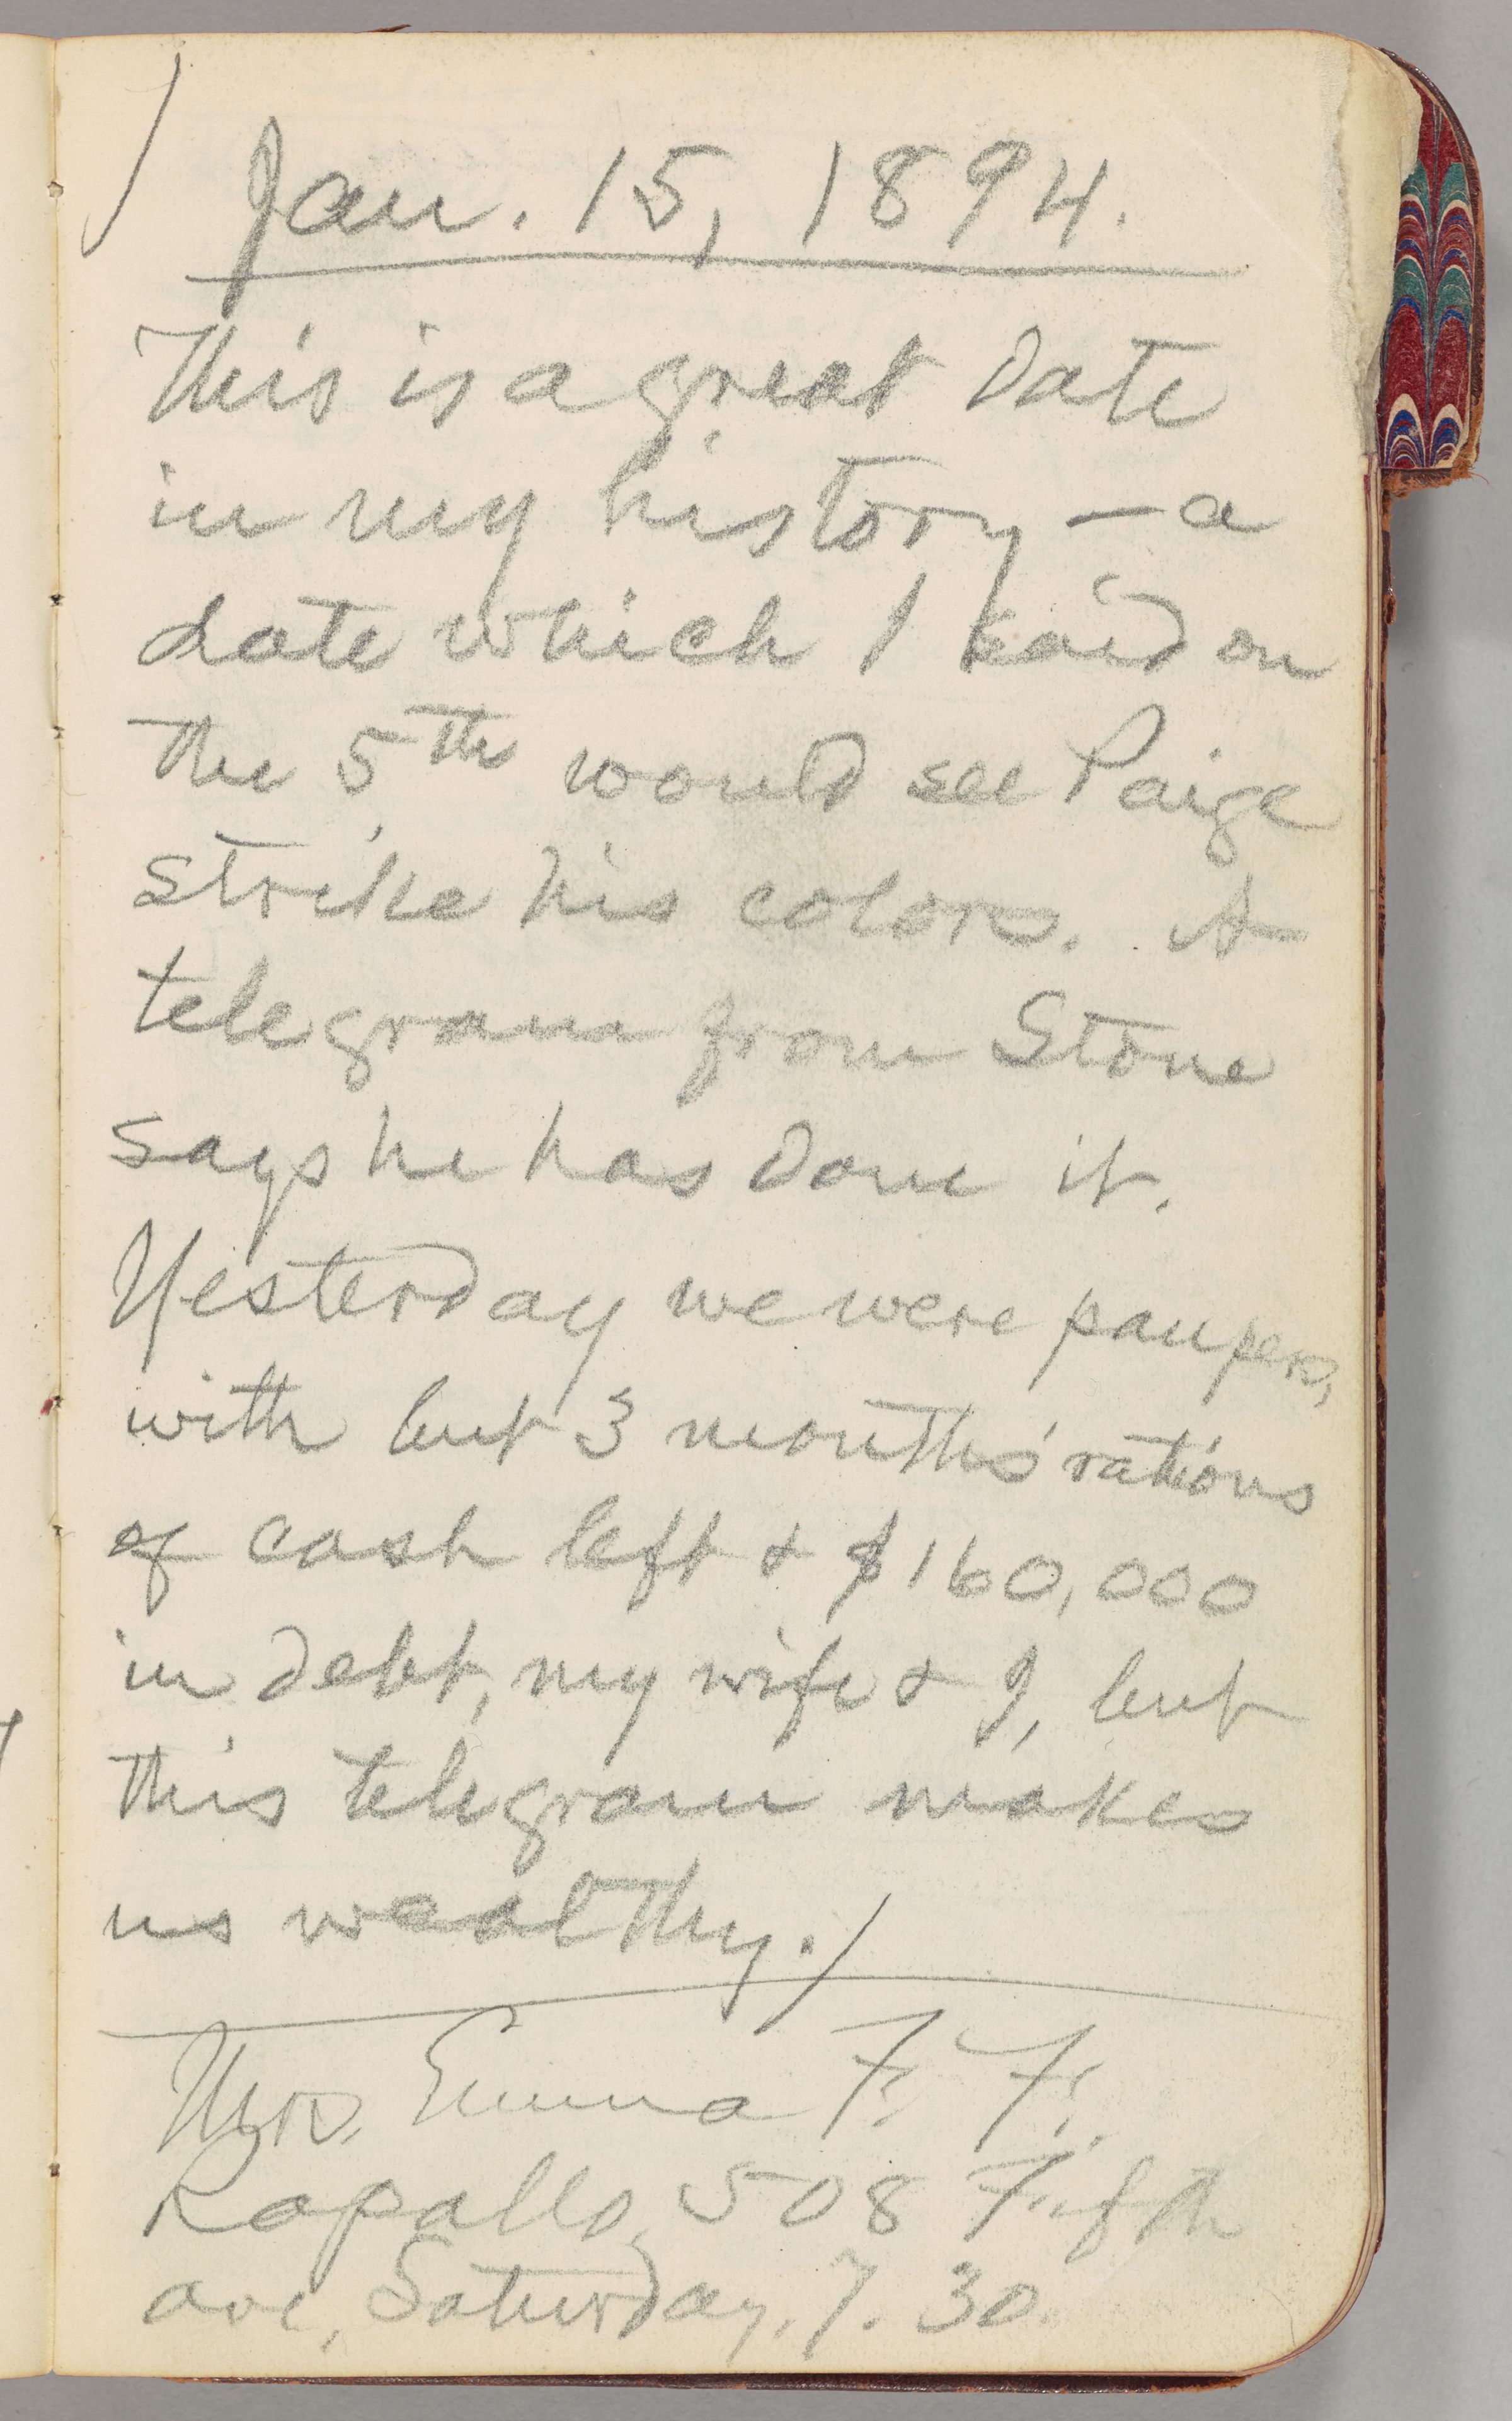 Jan. 15, 1894.
This is a great date
in my history — a
date which I said on
the 5th would see Paige
strike his colors. A
telegram from Stone
says he has done it.
Yesterday we were paupers,
with but 3 months' rations
of cash left & $160,000
in debt, my wife & I, but
this telegram makes
us wealthy.
Mrs. Emma F. F.
Rapallo, 508 Fifth
ave, Saturday, 7.30.